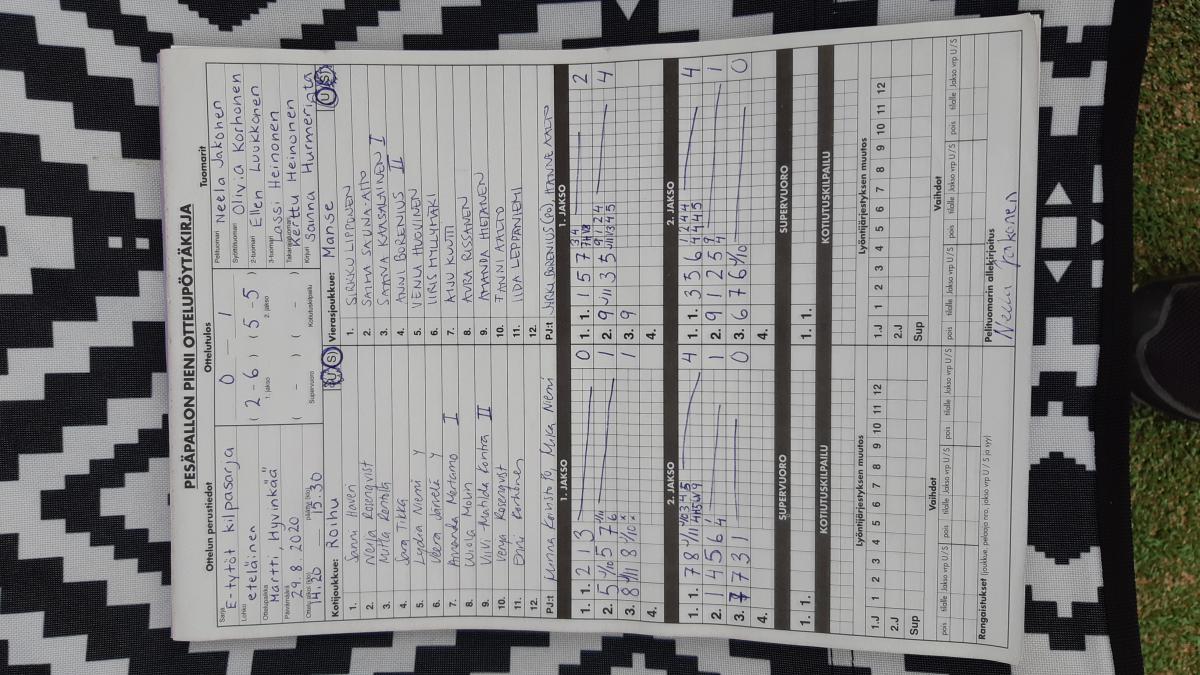 PESÄPALLON PIENI OTTELUPÖYTÄKIRJA
Ottelun perustiedot
Sarja
E-tytöt kilpasarja
Lohko
eteläinen
Ottelupaikka
Martti, Hyvinkää
Päivämäärä
29.8 2020
Ottelu alkoi (klo)
14.20
päättyi (klo)
15.30
Ottelutulos
0 – 1
( 2 - 6 ) ( 5 - 5 )
1. jakso 2. jakso
( - ) ( - )
Supervuoro Kotiutuskilpailu
Tuomarit
Pelituomari Neela Jakonen
Syöttötuomari Olivia Korhonen
2-tuomari Ellen Luukkonen
3-tuomari Lassi Heinonen
Takarajatuomari Kerttu Heinonen
Kirjuri Sanna Hurmerinta
Kotijoukkue: Roihu U/S
1. Sanni Haveri
2. Nelja Rosenqvist
3. Mirka Rentola
4. Saga Tikka
5. Lydia Niemi Y
6. Veera Järvelä Y
7. Amanda Mertamo I
8. Wiola Molin
9. ViVi-Matilda Kontra II
10. Venja Rosenqvist
11. Enni Korhonen
12.
PJ:t Minna Koristo Py, Mika Niemi
Vierasjoukkue: Manse U/S
1. SIRKKU LIPPONEN
2. SAIMA SAUNA-AHO
3. SAAVA KANSALAINEN I
4. ANNI BORENIUS II
5. VENLA HUOVINEN
6. IIRIS MYLLYMÄKI
7. AINU KUUTTI
8. AURA RISSANEN
9. AMANDA HIETAINEN
10. FANNI AALTO
11. IIDA LEPPÄNIEMI
12.
PJ:t JYRKI BORENIUS (PO), HANNE AALTO
1. JAKSO
1. 1. 2 1 3 0
2. 5 1/10 5 7 1
3. 8 1/11 8 1/10 1
4.
1. JAKSO
1. 1. 1 5 7 2
2. 9 1/11 3 5 4
3. 9
4.
2. JAKSO
1. 1. 7 8 4
2. 1 4 5 6 1
3. 7 7 3 1 0
4.
2. JAKSO
1. 1. 3 3 6 4
2. 9 1 2 5 1
3. 6 7 6 1/10 0
4.
SUPERVUORO
1. 1.
SUPERVUORO
1. 1.
KOTIUTUSKILPAILU
KOTIUTUSKILPAILU
Lyöntijärjestyksen muutos
1.J 1 2 3 4 5 6 7 8 9 10 11 12
2.J
Sup
Lyöntijärjestyksen muutos
1.J 1 2 3 4 5 6 7 8 9 10 11 12
2.J
Sup
Vaihdot
pois tilalle Jakso vrp U/S pois tilalle Jakso vrp U/S pois tilalle Jakso vrp U/S
Vaihdot
pois tilalle Jakso vrp U/S pois tilalle Jakso vrp U/S pois tilalle Jakso vrp U/S
Rangaistukset (joukkue, pelaaja nro, jakso vrp U / S ja syy)
Pelituomarin allekirjoitus
Neela Jakonen